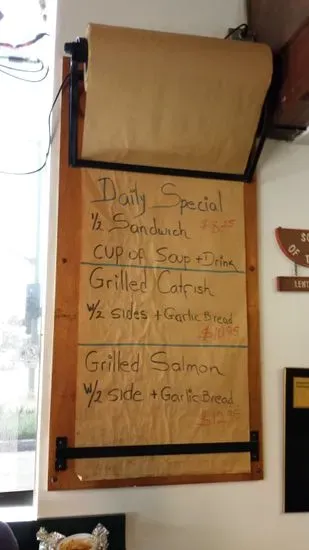 Daily Special
1/2 Sandwich $8.25
Cup of Soup + Drink
Grilled Catfish
w/2 sides + Garlic Bread
$10.95
Grilled Salmon
w/2 side + Garlic Bread
$12.95
SO
OF T
LENT